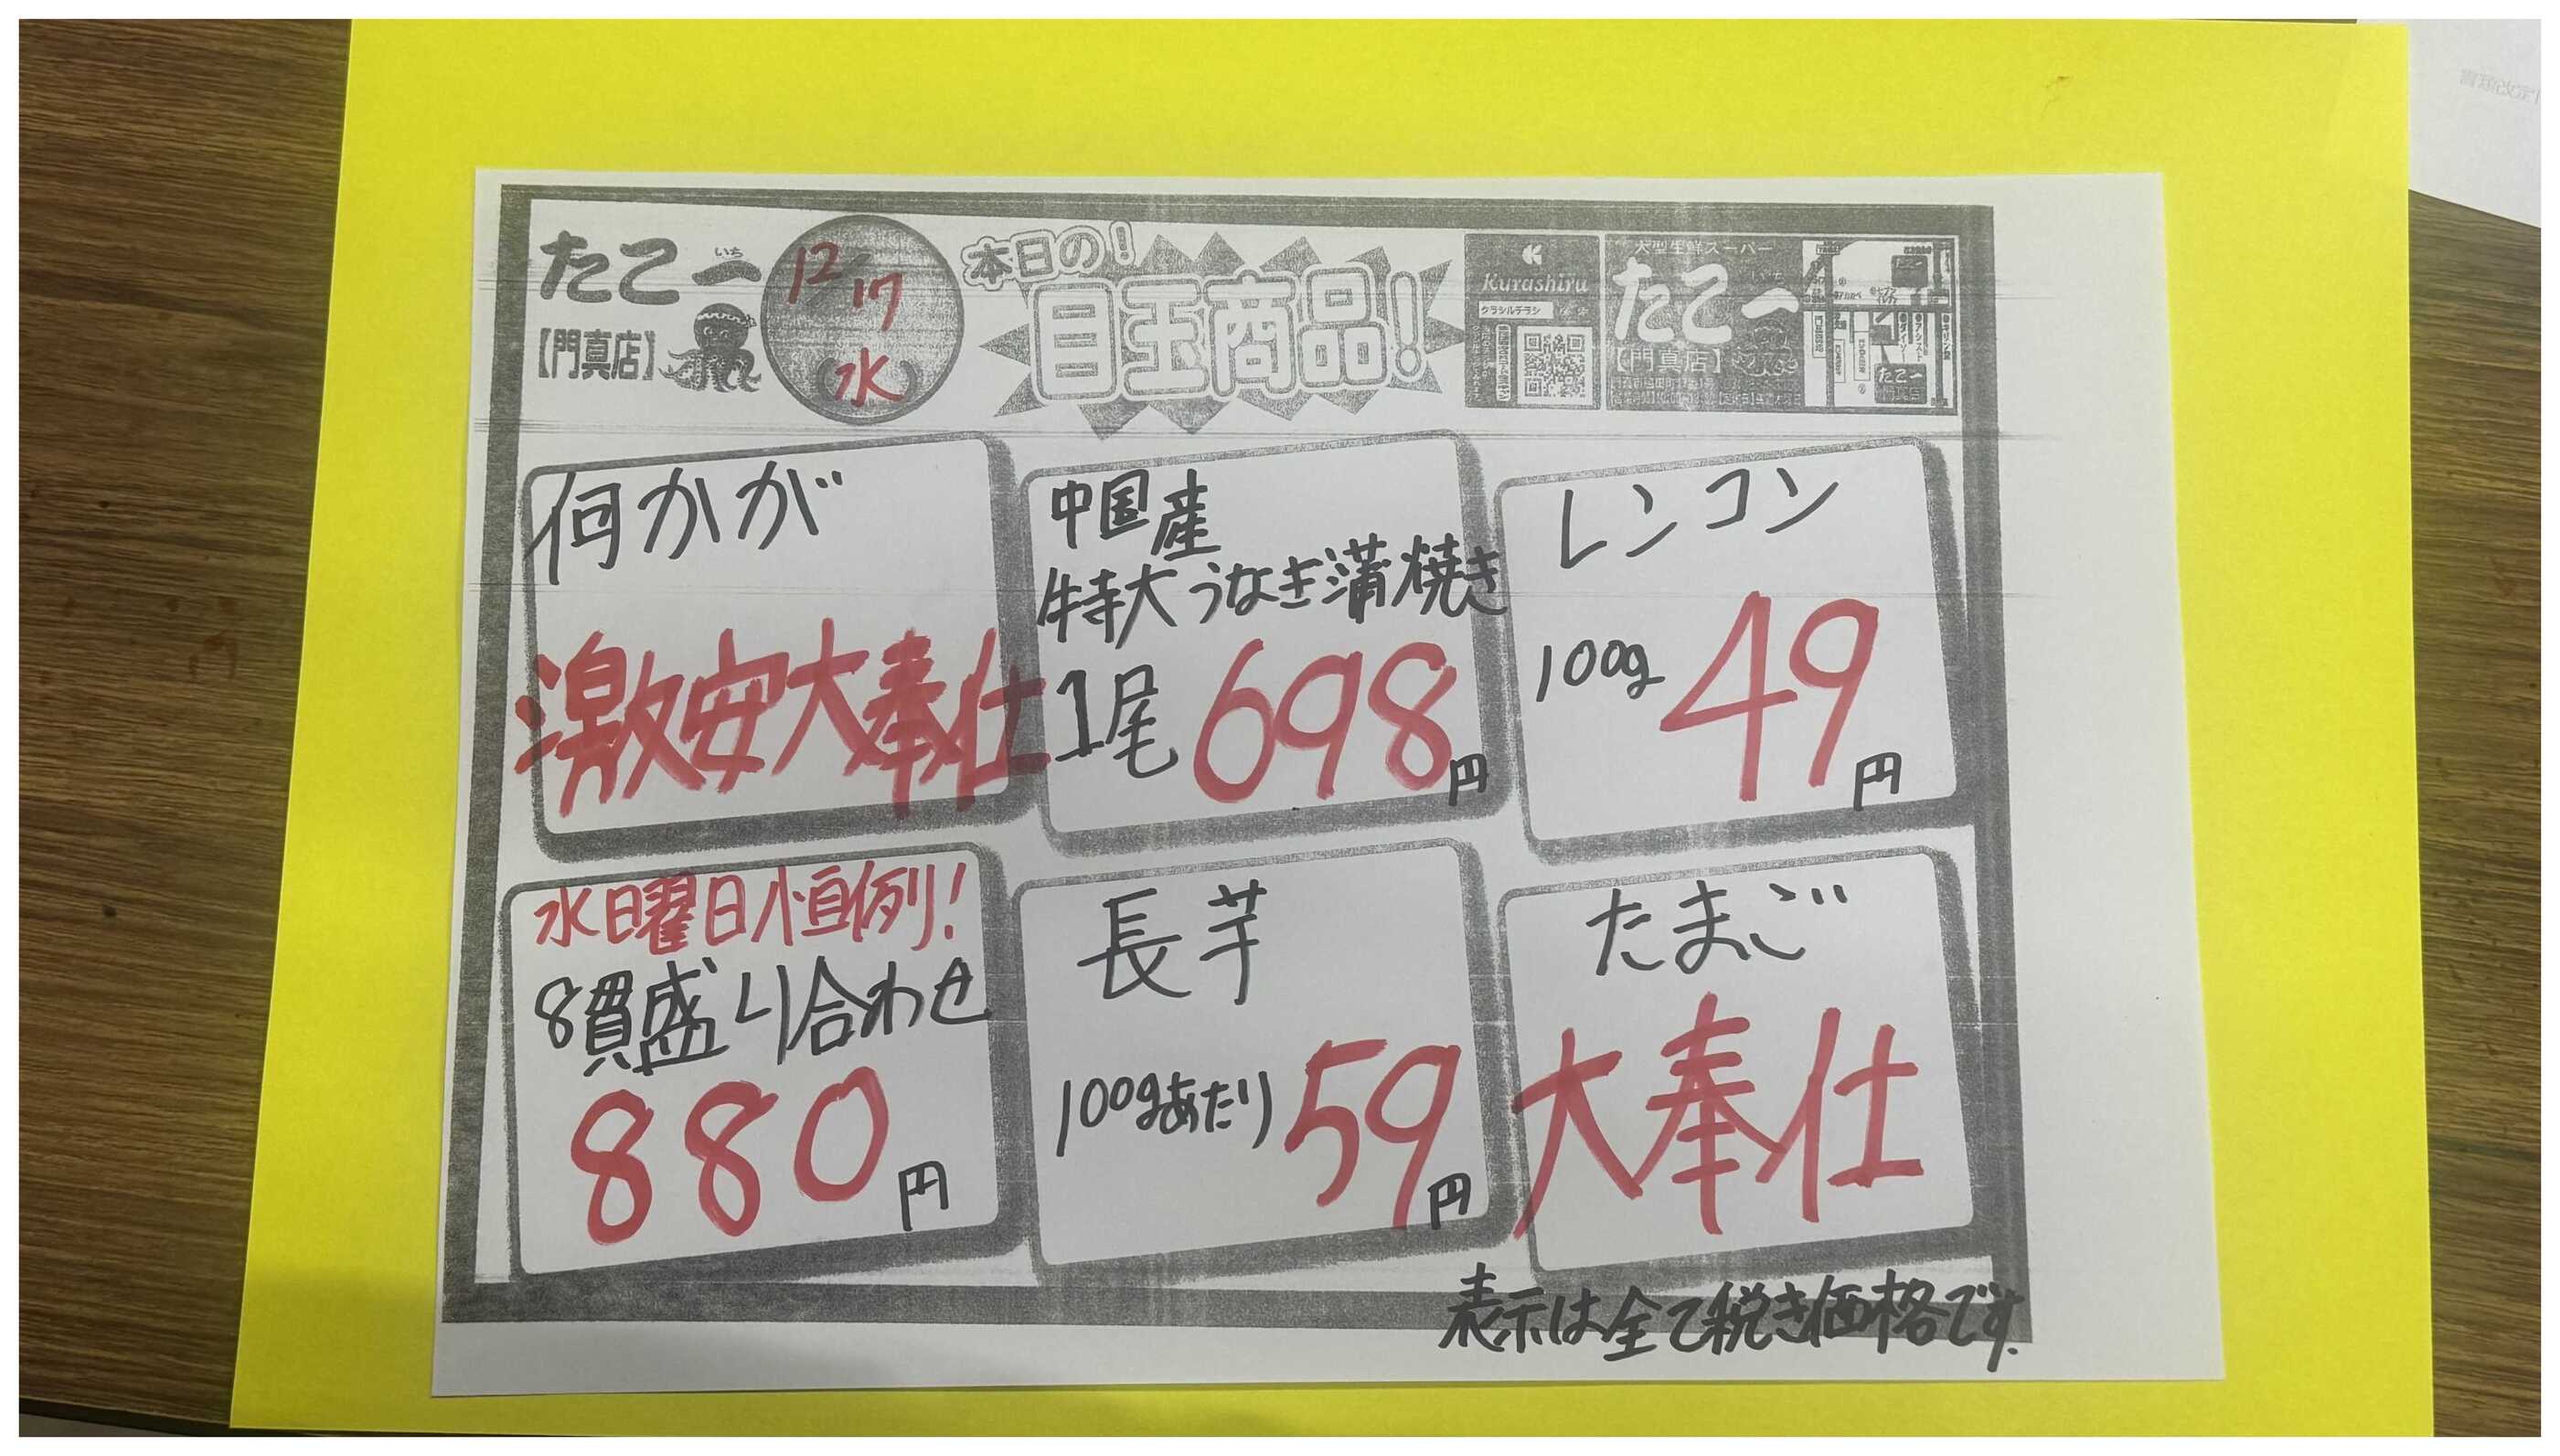 たこ一
いち
【門真店】
12/17
(水)
本日の!
目玉商品!
Kurashiru
クラシルチラシ
大型生鮮スーパー
たこ一
いち
【門真店】
たこ一
何かが
激安大奉仕
中国産
特大うなぎ蒲焼き
1尾 698円
レンコン
100g 49円
水曜日恒例!
8貫盛り合わせ
880円
長芋
100gあたり 59円
たまご
大奉仕
表示は全て税き価格です.